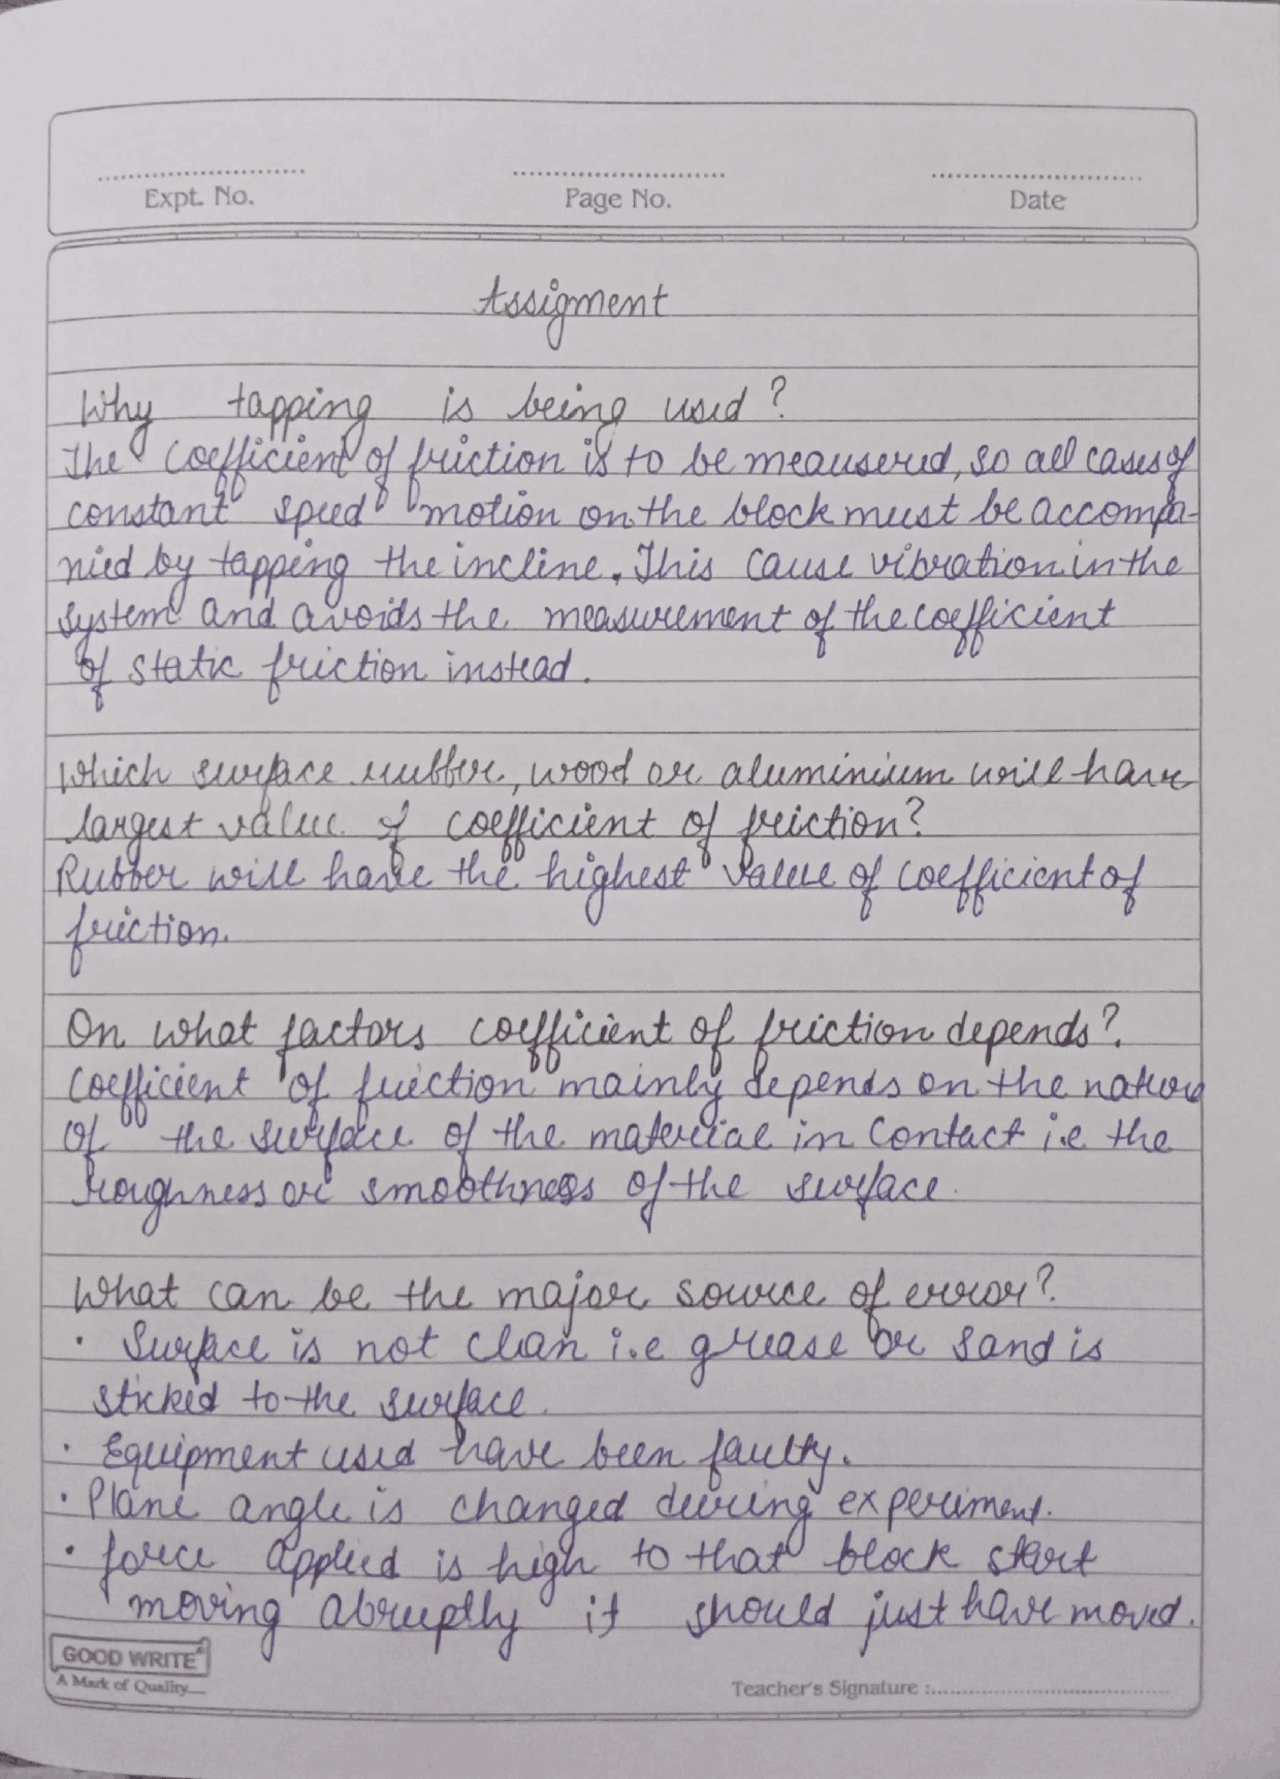 Expt. No. Page No. Date
Assigment
Why tapping is being used?
The coefficient of friction is to be meausered, so all cases of
constant speed motion on the block must be accompa-
nied by tapping the incline. This cause vibration in the
system and avoids the measurement of the coefficient
of static friction instead.
Which surface rubber, wood or aluminium will have
largest value of coefficient of friction?
Rubber will have the highest value of coefficient of
friction.
On what factors coefficient of friction depends?
Coefficient of friction mainly depends on the nature
of the surface of the material in contact i.e the
roughness or smoothness of the surface.
What can be the major source of error?
• Surface is not clean i.e grease or sand is
sticked to the surface.
• Equipment used have been faulty.
• Plane angle is changed during experiment.
• force applied is high to that block start
moving abruptly it should just have moved.
GOOD WRITE
A Mark of Quality
Teacher's Signature :